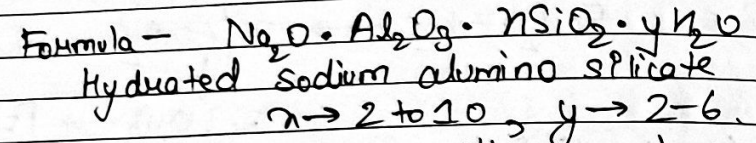 Formula — Na₂O • Al₂O₃ • xSiO₂ • yH₂O
Hydrated sodium alumino silicate
x → 2 to 10, y → 2-6.